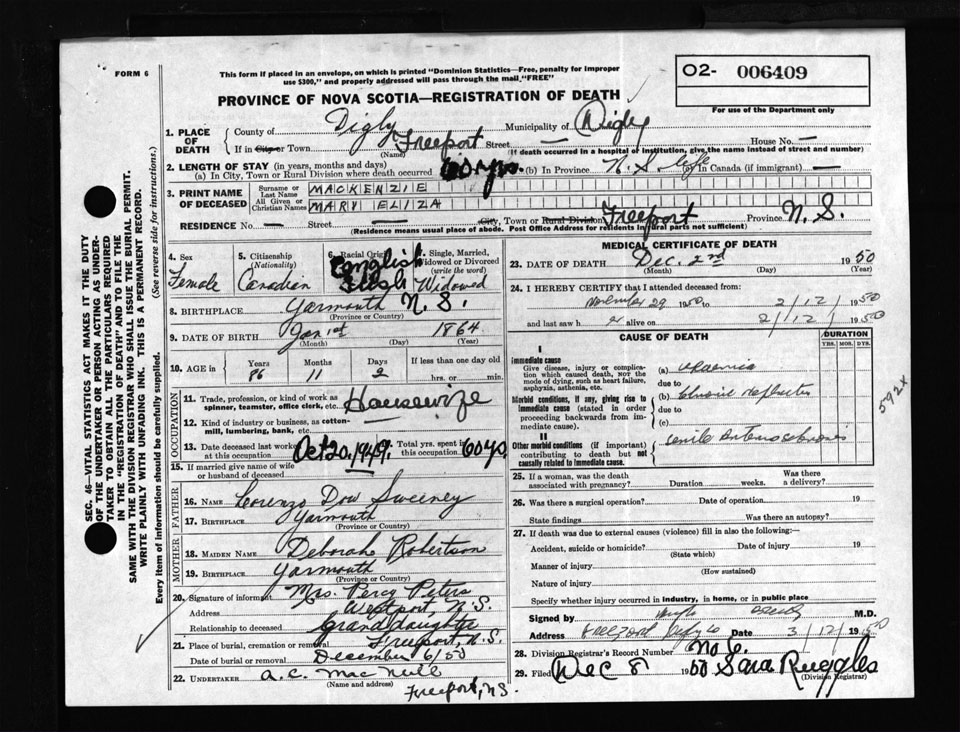 FORM 6
This form if placed in an envelope, on which is printed "Dominion Statistics—Free, penalty for improper
use $300," and properly addressed will pass through the mail "FREE"
O2- 006409
For use of the Department only
PROVINCE OF NOVA SCOTIA—REGISTRATION OF DEATH
1. PLACE OF DEATH
County of Digby Municipality of Digby
If in City or Town Freeport Street House No. —
(Name) (If death occurred in a hospital of institution, give the name instead of street and number)
2. LENGTH OF STAY (in years, months and days)
(a) In City, Town or Rural Division where death occurred 60 yrs. (b) In Province N.S. life In Canada (if immigrant) —
3. PRINT NAME OF DECEASED
Surname or Last Name MACKENZIE
All Given or Christian Names MARY ELIZA
RESIDENCE No. — Street — City, Town or Rural Division Freeport Province N.S.
(Residence means usual place of abode. Post Office Address for residents in rural parts not sufficient)
4. Sex Female
5. Citizenship (Nationality) Canadian
6. Racial Origin English
7. Single, Married, Widowed or Divorced (write the word) Widowed
8. BIRTHPLACE Yarmouth N.S.
(Province or Country)
9. DATE OF BIRTH Jan 1st 1864
(Month) (Day) (Year)
10. AGE in Years 86 Months 11 Days 2 If less than one day old
hrs. or min.
OCCUPATION
11. Trade, profession, or kind of work as
spinner, teamster, office clerk, etc. Housewife
12. Kind of industry or business, as cotton-
mill, lumbering, bank, etc.
13. Date deceased last worked at this occupation Oct 20, 1949. Total yrs. spent in this occupation 60 yrs
15. If married give name of wife
or husband of deceased
FATHER
16. NAME Lorenzo Dow Sweeney
17. BIRTHPLACE Yarmouth
(Province or Country)
MOTHER
18. MAIDEN NAME Deborah Robertson
19. BIRTHPLACE Yarmouth
(Province or Country)
20. Signature of informant Mrs. Percy Peters
Address Westport, N.S.
Relationship to deceased Granddaughter
21. Place of burial, cremation or removal Freeport N.S.
Date of burial or removal December 6/50
22. UNDERTAKER A.C. MacNeill
(Name and address)
Freeport, N.S.
MEDICAL CERTIFICATE OF DEATH
23. DATE OF DEATH Dec. 2nd 1950
(Month) (Day) (Year)
24. I HEREBY CERTIFY that I attended deceased from:
November 29 1950 to 2/12 1950
and last saw h er alive on 2/12 1950
CAUSE OF DEATH
DURATION
YRS. MOS. DYS.
I
Immediate cause
Give disease, injury or complication which caused death, NOT the mode of dying, such as heart failure, asphyxia, asthenia, etc.
(a) Uraemia
due to
Morbid conditions, if any, giving rise to immediate cause (stated in order proceeding backwards from immediate cause).
(b) Chronic Nephritis
due to
(c)
592X
II
Other morbid conditions (if important) contributing to death but not causally related to immediate cause.
senile arteriosclerosis
25. If a woman, was the death associated with pregnancy? Duration weeks. Was there a delivery?
26. Was there a surgical operation? Date of operation 19
State findings Was there an autopsy?
27. If death was due to external causes (violence) fill in also the following:
Accident, suicide or homicide? Date of injury 19
(State which)
Manner of injury
(How sustained)
Nature of injury
Specify whether injury occurred in industry, in home, or in public place
Signed by M.D.
Address Date 3/12/1950
28. Division Registrar's Record Number No 6.
29. Filed Dec 8 1950 Sara Ruggles
(Division Registrar)
SEC. 46—VITAL STATISTICS ACT MAKES IT THE DUTY
OF THE UNDERTAKER OR PERSON ACTING AS UNDER-
TAKER TO OBTAIN ALL THE PARTICULARS REQUIRED
IN THE "REGISTRATION OF DEATH" AND TO FILE THE
SAME WITH THE DIVISION REGISTRAR WHO SHALL ISSUE THE BURIAL PERMIT.
WRITE PLAINLY WITH UNFADING INK. THIS IS A PERMANENT RECORD.
Every item of information should be carefully supplied. (See reverse side for instructions.)